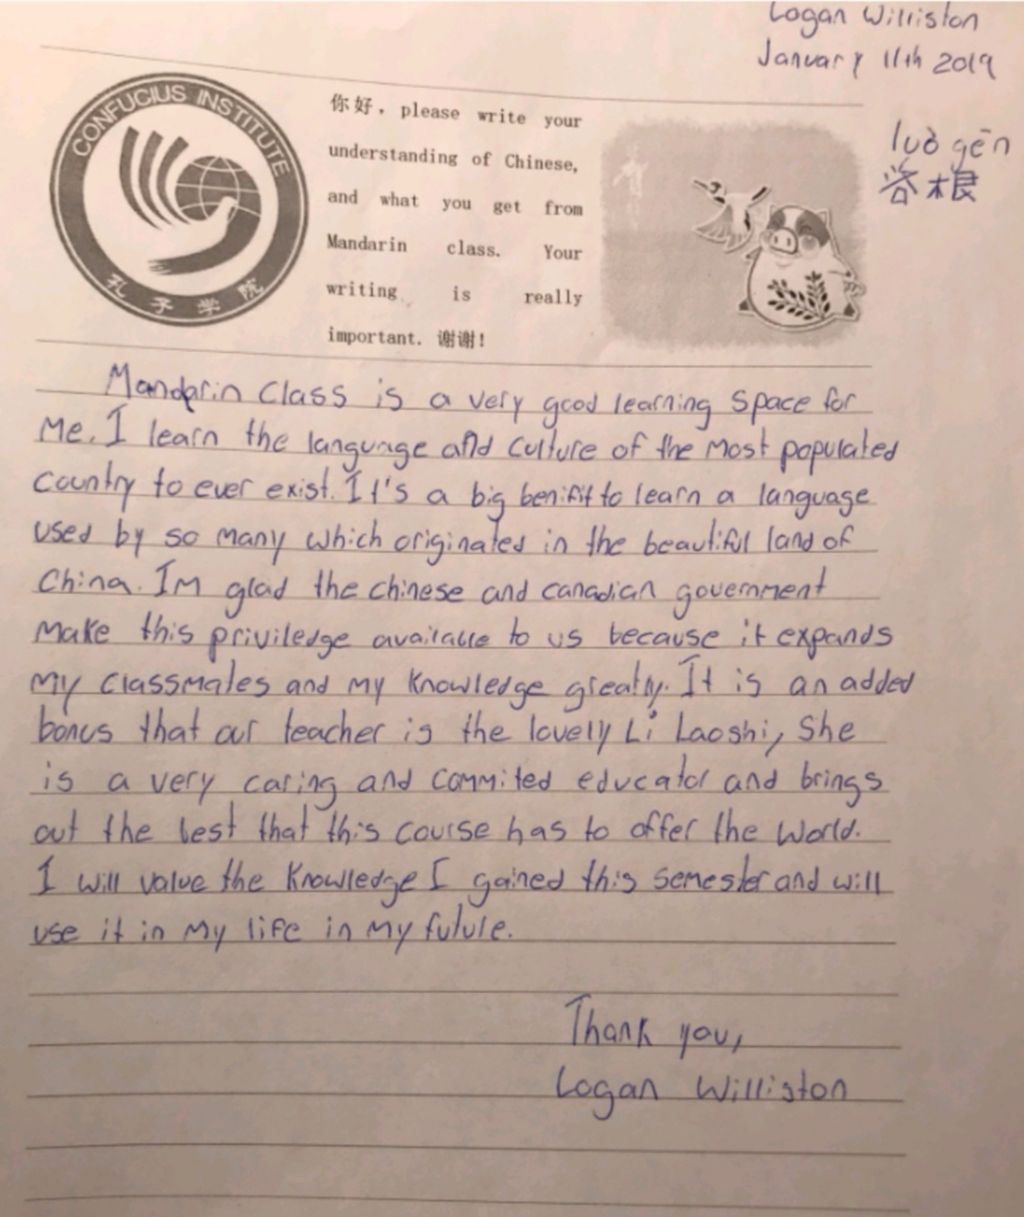 Logan Williston
January 11th 2019
luò gēn
CONFUCIUS INSTITUTE
孔子学院
你好, please write your
understanding of Chinese,
and what you get from
Mandarin class. Your
writing is really
important. 谢谢!
Mandarin Class is a very good learning space for
Me. I learn the language and culture of the Most populated
country to ever exist. It's a big benifit to learn a language
used by so many which originated in the beautiful land of
China. Im glad the chinese and canadian government
Make this priviledge available to us because it expands
My classmates and my knowledge greatly. It is an added
bonus that our teacher is the lovely Li Laoshi, She
is a very caring and commited educator and brings
out the best that this course has to offer the world.
I will value the knowledge I gained this semester and will
use it in My life in My future.
Thank you,
Logan Williston